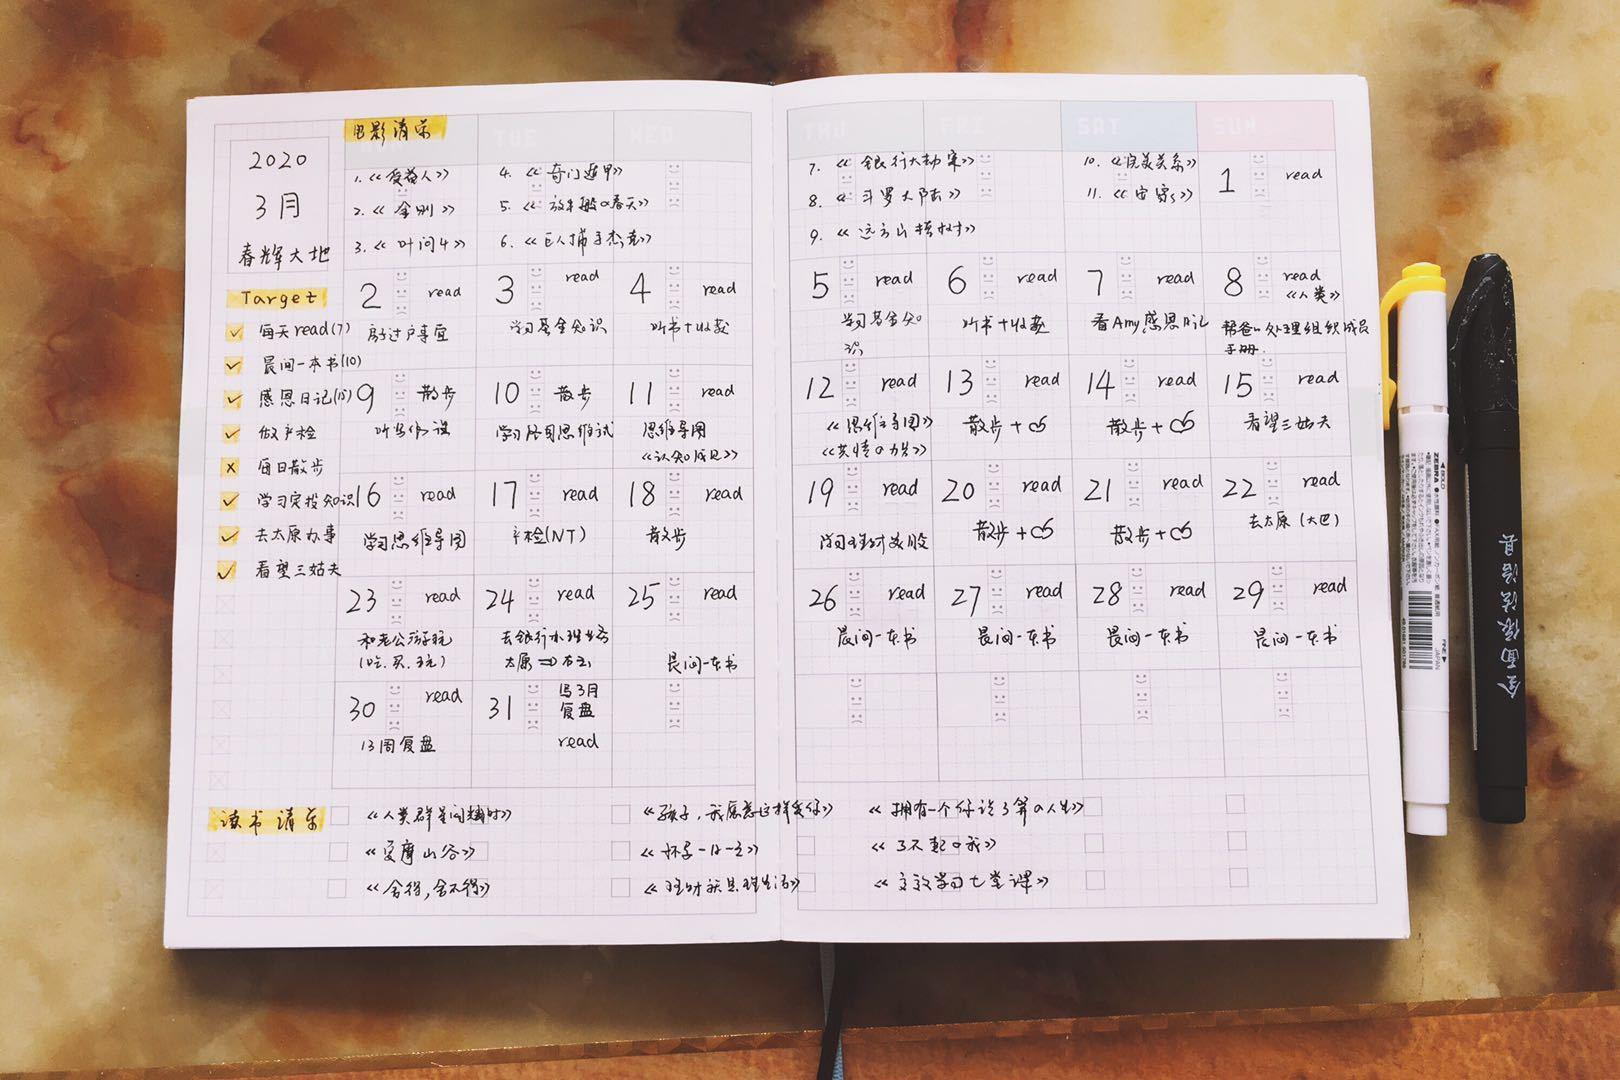 电影清单
TUE
WED
THU
FRI
SAT
SUN
2020
3月
春辉大地
1.《受益人》
2.《金刚》
3.《叶问4》
4.《奇门遁甲》
5.《放牛班の春天》
6.《巨人捕手杰克》
7.《银行大劫案》
8.《斗罗大陆》
9.《远方山楂树》
10.《完美关系》
11.
1 read
Target
每天read(7)
晨间一本书(10)
感恩日记(15)
做产检
x 每日散步
学习实投知识
去太原办事
看望三姑夫
2 read
房过户事宜
3 read
学习基金知识
4 read
听书+收获
5 read
学习基金知
识
6 read
听书+收获
7 read
看Amy感恩日记
8 read
《人类》
帮爸处理组织成员
手册.
9 散步
10 散步
11 read
思维导图
《认知成见》
12 read
《思维导图》
《共情の力量》
13 read
散步+
14 read
散步+
15 read
看望三姑夫
16 read
学习思维导图
17 read
产检(NT)
18 read
散步
19 read
学习理财
20 read
散步+
21 read
散步+
22 read
去太原(大巴)
23 read
和老公游玩
(吃.买.玩)
24 read
去银行办理业务
太原⇒
25 read
晨间一本书
26 read
晨间一本书
27 read
晨间一本书
28 read
晨间一本书
29 read
晨间一本书
30 read
13周复盘
31 写3月
复盘
read
读书清单
《人类群星闪耀时》
《孩子,我愿意这样爱你》
《拥有一个你说了算の人生》
《夏摩山谷》
《怀孕一日一页》
《了不起の我》
《舍得,舍不得》
《理财就是理生活》
《高效学习七堂课》
ZEBRA
JAPAN
全面依法治县